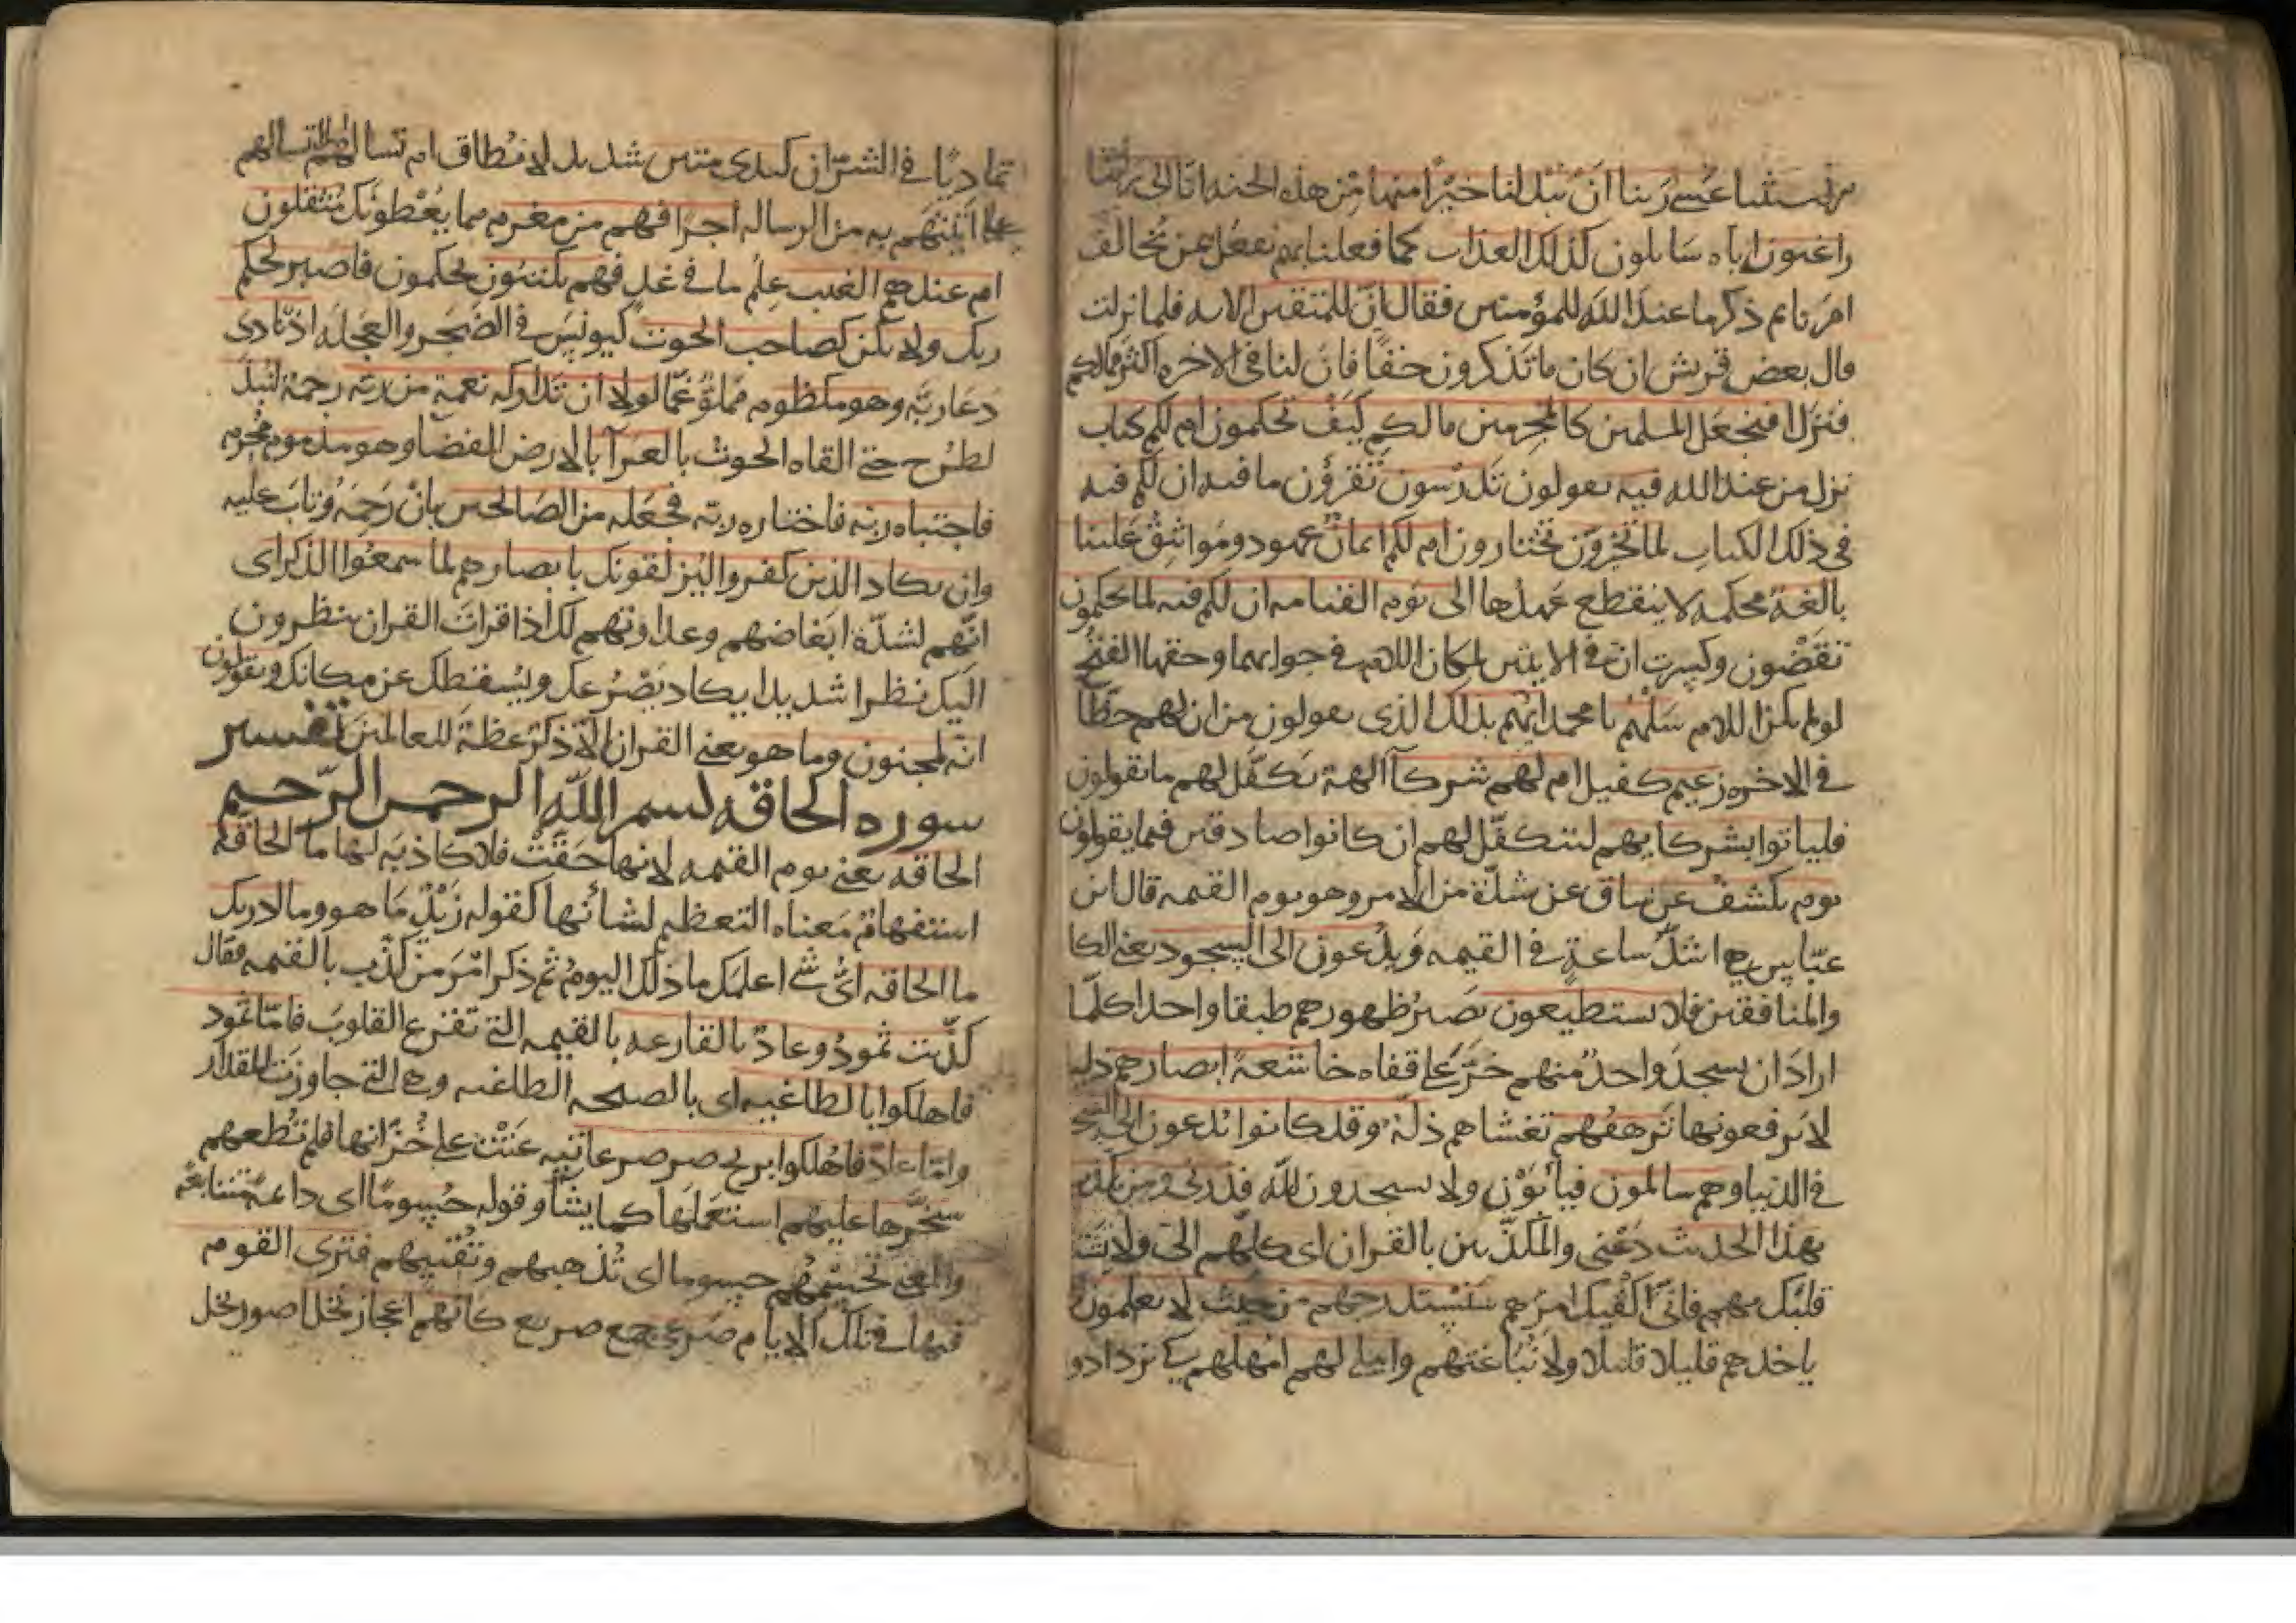 عسى ربنا ان يبدلنا خيرا منها من هذه الجنة انا الى ربنا
راغبون اياه سايلون كذلك العذاب كما فعلنا بهم نفعل بمن تخالف
امرنا ثم ذكر ما عند الله للمؤمنين فقال ان للمتقين الايه فلما نزلت
قال بعض قريش ان كان ما تذكرون حقا فان لنا في الاخره اكثر مالكم
فنزل افنجعل المسلمين كالمجرمين ما لكم كيف تحكمون ام لكم كتاب
نزل من عند الله فيه يعولون تدرسون تقرؤن ما فيه ان لكم فيه
في ذلك الكتاب لما تخيرون تختارون ام لكم ايمان عهود ومواثيق علينا
بالغة محكمه لا ينقطع عهدها الى يوم القيامه ان لكم فيه لما تحكمون
تقضون وكسرت ان في الايتين لمكان اللام في جوابهما وحقها الفتح
لو لم يكن اللام سلهم يا محمد ايهم بذلك الذى يعولون من ان لهم حظا
في الاخره زعيم كفيل ام لهم شركآ الهة تكفل لهم ما يقولون
فلياتوا بشركايهم لتتكفل لهم ان كانوا صادقين فيما يقولون
يوم يكشف عن ساق عن شدة من الامر وهو يوم القيمه قال ابن
عباس هي اشد ساعة في القيمه ويدعون الى السجود يعني الكا
والمنافقين فلا يستطيعون تصير ظهورهم طبقا واحدا كلما
اراد ان يسجد واحد منهم خر على قفاه خاشعة ابصارهم ذليلة
لا يرفعونها ترهقهم تغشاهم ذلة وقد كانوا يدعون الى السجو
في الدنيا وهم سالمون فيأبون ولا يسجدون لله فذرني ومن يكذب
بهذا الحديث دعني والمكذبين بالقران اى كلهم الي ولا تشتغل
قلبك بهم فاني اكفيك امرهم سنستدرجهم من حيث لا يعلمون
ياخذهم قليلا قليلا ولا نباغتهم واملي لهم امهلهم كي يزدادوا
تماديا في الشر ان كيدى متين شديد لا يطاق ام تسالهم
على ما اتيتهم به من الرساله اجرا فهم من مغرم مما يعطونك مثقلون
ام عندهم الغيب علم ما في غد فهم يكتبون يحكمون فاصبر لحكم
ربك ولا تكن كصاحب الحوت كيونس في الضجر والعجله اذ نادى
دعا ربه وهو مكظوم مملو غما لولا ان تداركه نعمة من ربه رحمة لنبذ
لطرح حتى القاه الحوت بالعرآ بالارض الفضا وهو مذموم مجرم
فاجتباه ربه فاختاره ربه فجعله من الصالحين بان رحمه وتاب عليه
وان يكاد الذين كفروا ليزلقونك بابصارهم لما سمعوا الذكر اى
انهم لشدة ابغاضهم وعداوتهم لك اذا قرات القران ينظرون
اليك نظرا شديدا يكاد يصرعك ويسقطك عن مكانك ويقولون
انه لمجنون وما هو يعني القران الا ذكر عظة للعالمين تفسير
سوره الحاقه بسم الله الرحمن الرحيم
الحاقه يعني يوم القيمه لانها حقت فلا كاذبه لها ما الحاقه
استفهام معناه التعظيم لشأنها كقوله زيد ما هو وما ادريك
ما الحاقه اى شي اعلمك ما ذلك اليوم ثم ذكر امر من كذب بالقيمه فقال
كذبت ثمود وعاد بالقارعه بالقيمه التي تقرع القلوب فاما ثمود
فاهلكوا بالطاغيه اى بالصيحه الطاغيه وهي التي جاوزت المقدار
واما عاد فاهلكوا بريح صرصر عاتيه عتت على خزانها فلم تطعهم
سخرها عليهم استعملها كما يشأ وقوله حسوما اى داعة متتابعة
والمعنى تحسمهم حسوما اى تذهبهم وتفنيهم فترى القوم
فيها في تلك الايام صرعى جمع صريع كانهم اعجاز نخل اصور نخل